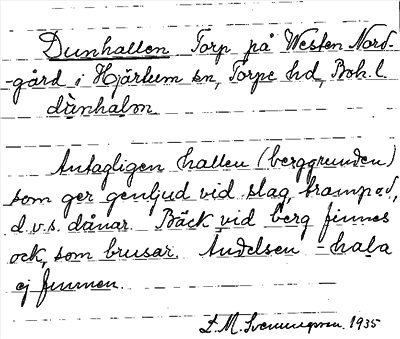 Dunhallen Torp på Westen Nord-
-gård i Hjärtum sn, Torpe hd, Boh. l.
dùnhalm.
Antagligen hallen (berggrunden)
som ger genljud vid slag,
d.v.s. dånar. Bäck vid berg finnes
ock, som brusar. Ändelsen -hala
ej funnen.
L. M. Svenungsson. 1935